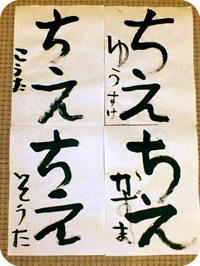 ちえ
ゆうすけ
ちえ
こうた
ちえ
かずま
ちえ
そうた